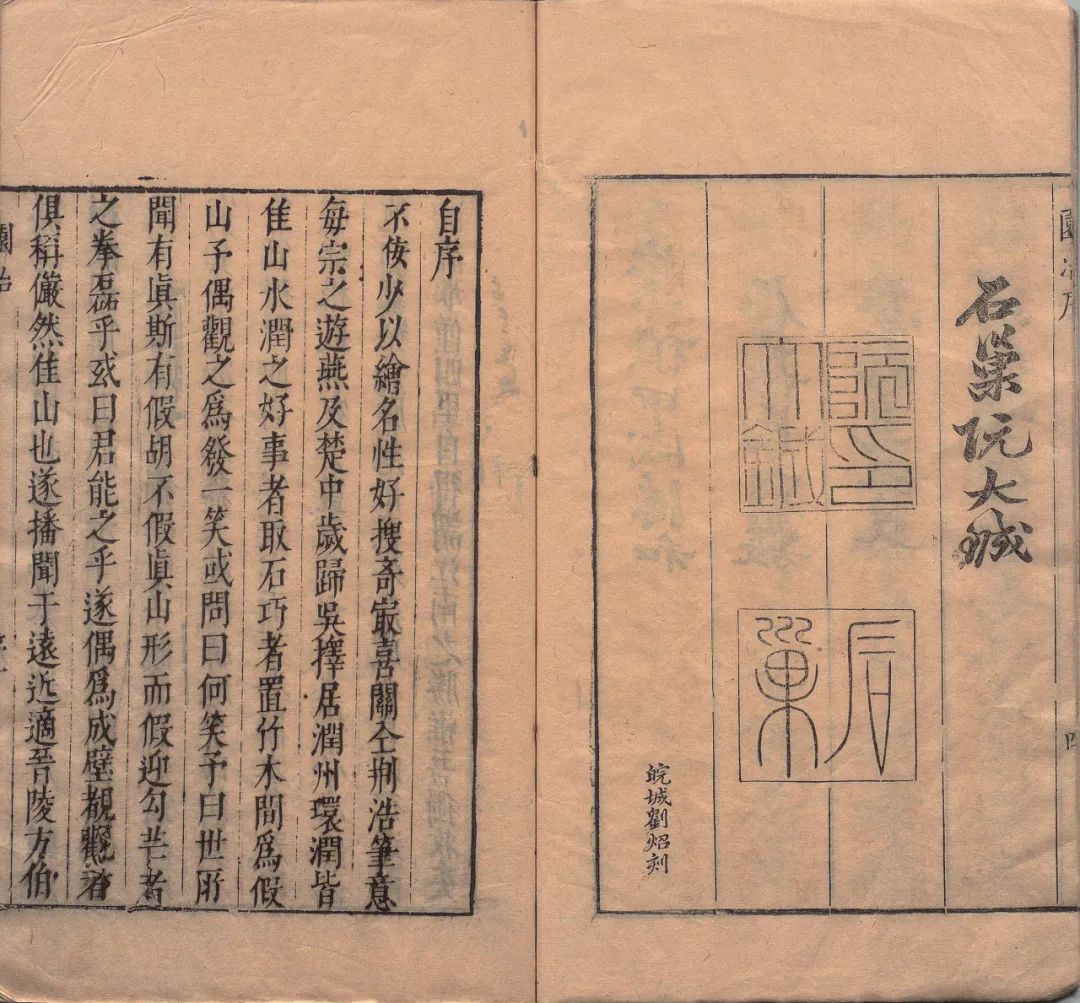 園冶序
石巢阮大鋮
阮印大鋮
石巢
皖城劉炤刻
四
自序
不佞少以繪名性好搜奇㝡喜關仝荆浩筆意
每宗之遊燕及楚中歲歸吳擇居潤州環潤皆
佳山水潤之好事者取石巧者置竹木間爲假
山予偶觀之爲發一笑或問曰何笑予曰世所
聞有眞斯有假胡不假眞山形而假迎勾芒者
之拳磊乎或曰君能之乎遂偶爲成壁覩觀者
俱稱儼然佳山也遂播聞于遠近適晉陵方伯
園冶